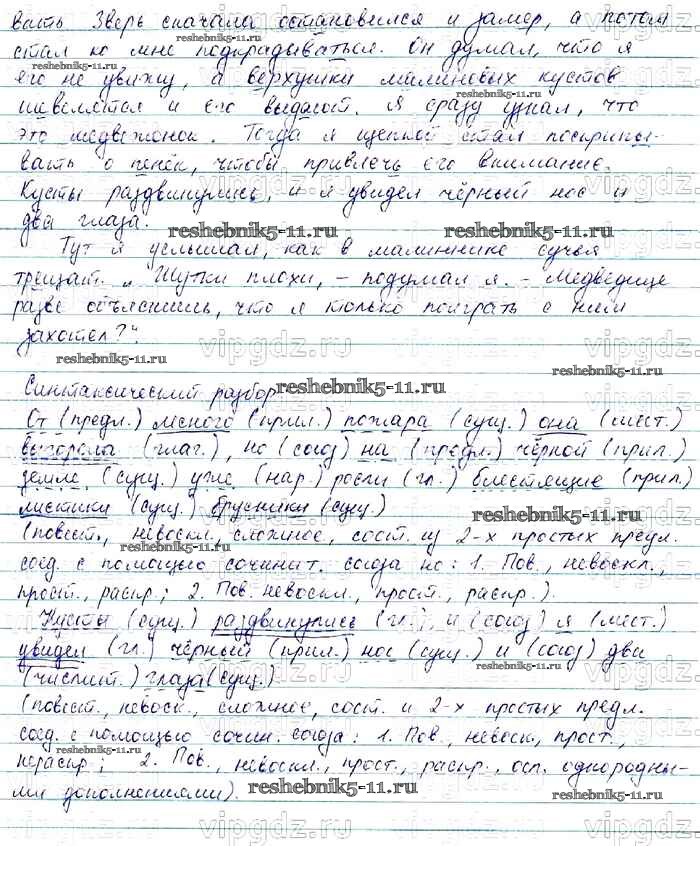 вать Зверь сначала остановился и замер, а потом
стал ко мне подкрадываться. Он думал, что я
его не увижу, а верхушки малиновых кустов
шевелятся и его выдают. Я сразу узнал, что
это медвежонок. Тогда я щепкой стал поскрипы-
вать о пенёк, чтобы привлечь его внимание.
Кусты раздвинулись, и я увидел чёрный нос и
два глаза.
Тут я услышал, как в малиннике сучья
трещат. „Шутки плохи, – подумал я. – Медведице
разве объяснишь, что я только поиграть с ним
захотел?“.
Синтаксический разбор
От (предл.) лесного (прил.) пожара (сущ.) она (мест.)
выгорела (глаг.), но (союз) на (предл.) чёрной (прил.)
земле (сущ.) уже (нар.) росли (гл.) блестящие (прил.)
листики (сущ.) брусники (сущ.)
(повест., невоскл., сложное, сост. из 2-х простых предл.
соед. с помощью сочинит. союза но: 1. Пов., невоскл.,
прост., распр.; 2. Пов. невоскл., прост., распр.).
Кусты (сущ.) раздвинулись (гл.), и (союз) я (мест.)
увидел (гл.) чёрный (прил.) нос (сущ.) и (союз) два
(числит.) глаза (сущ.)
(повест., невоск., сложное, сост. и 2-х простых предл.
соед. с помощью сочин. союза: 1. Пов., невоск., прост.,
нераспр; 2. Пов., невоскл., прост., распр., осл. однородны-
ми дополнениями).
reshebnik5-11.ru
vipgdz.ru